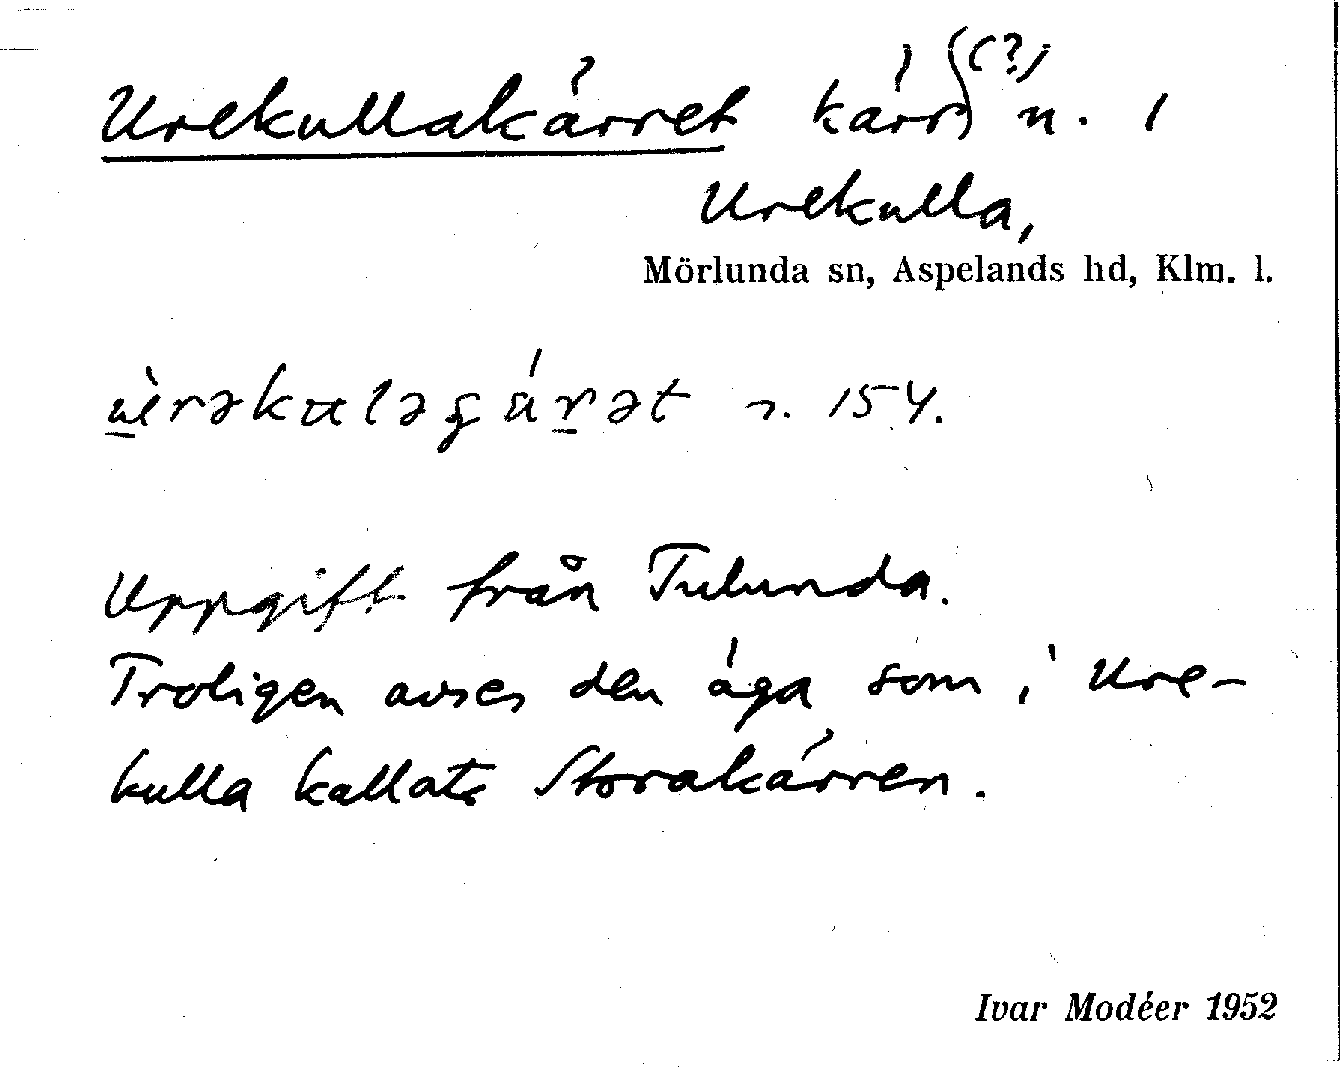 Urekullakärret kärr(?) n. 1
Urekulla,
Mörlunda sn, Aspelands hd, Klm. l.
n. 154.
Uppgift från Tulunda.
Troligen avses den äga som i Ure-
kulla kallats Storakärren.
Ivar Modéer 1952